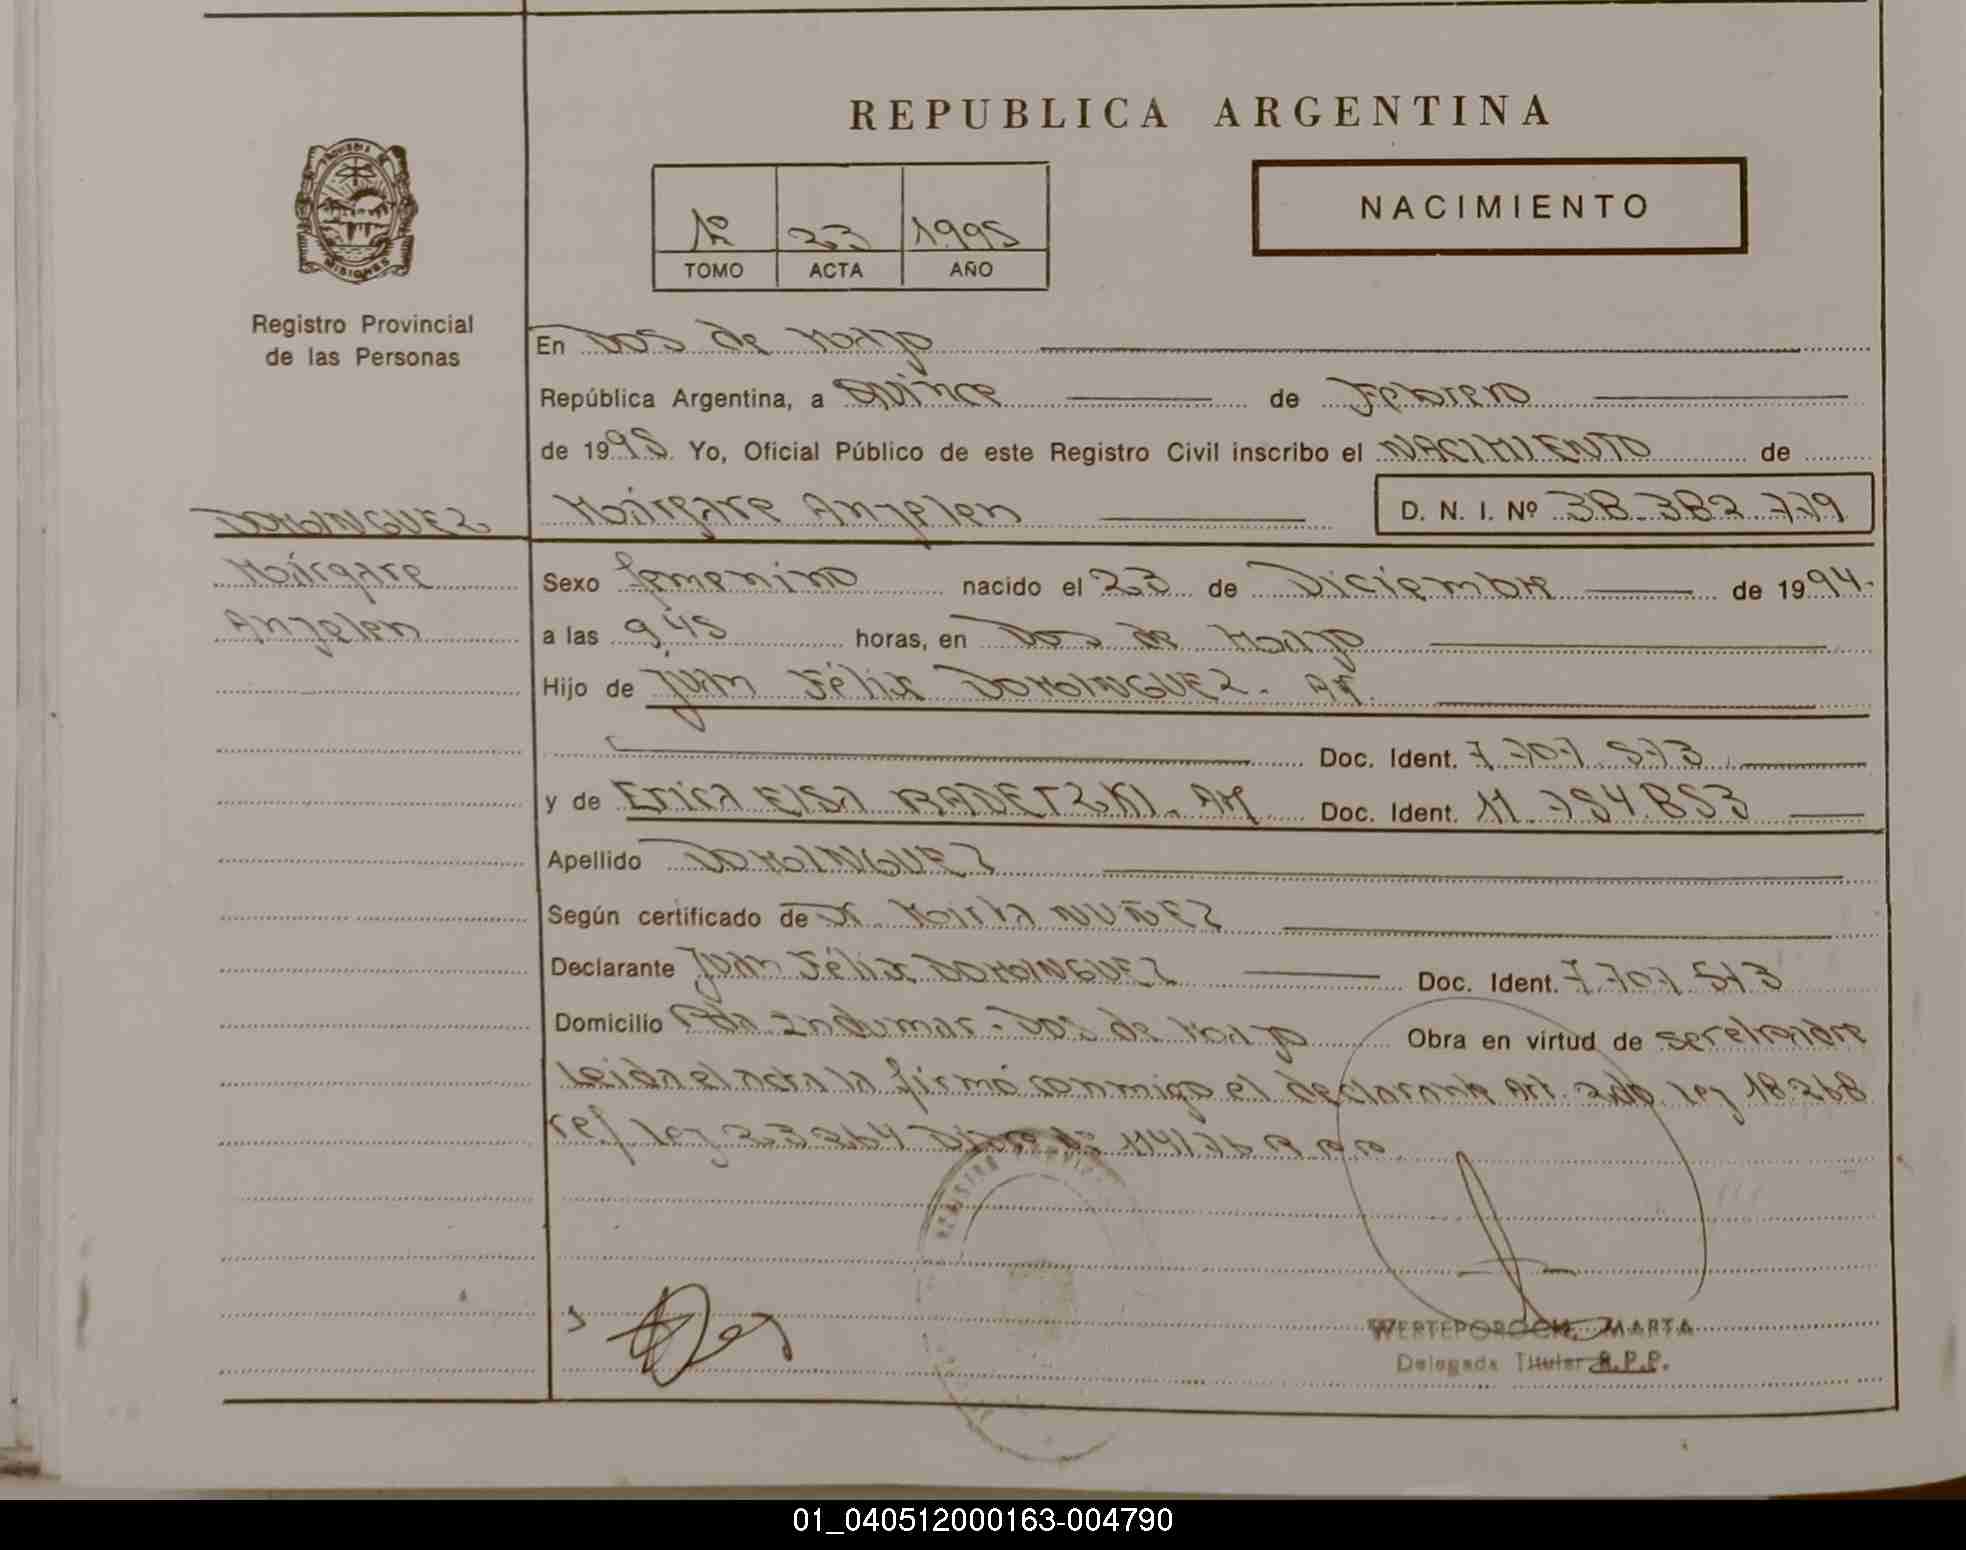 REPUBLICA ARGENTINA
NACIMIENTO
1º 23 1995
TOMO ACTA AÑO
PROVINCIA DE
MISIONES
Registro Provincial
de las Personas
En Dos de Mayo
República Argentina, a Quince de Febrero
de 1995 Yo, Oficial Público de este Registro Civil inscribo el NACIMIENTO de
DOMINGUEZ
Anjelen D. N. I. Nº 38.382.779
Anjelen
Sexo femenino nacido el 23 de Diciembre de 1994.
a las 9,45 horas, en Dos de Mayo
Hijo de Juan Félix DOMINGUEZ. Ar.
Doc. Ident. 7.707.573
y de Erica Elsa RADETZKI. Ar Doc. Ident. 11.754.853
Apellido DOMINGUEZ
Según certificado de Dr. Mirta NUÑEZ
Declarante Juan Félix DOMINGUEZ Doc. Ident. 7.707.573
Domicilio Dos de Mayo Obra en virtud de ser el padre
Leida el acta la firmó conmigo el declarante Art. Ley 18.268
ref Ley 23.264
WERTEPOROCH, MARTA
Delegada Titular R.P.P.
01_040512000163-004790